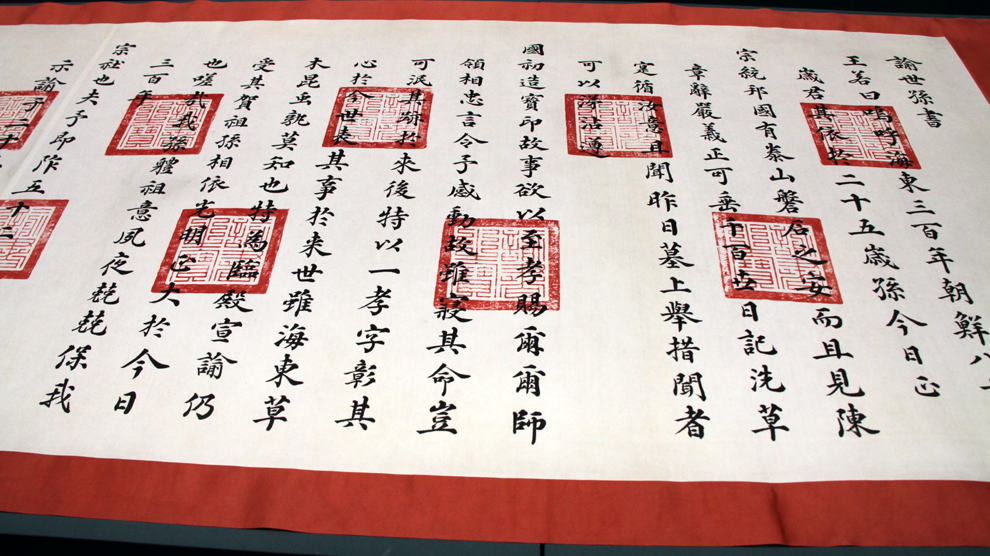 諭世孫書
王若曰嗚呼海東三百年朝鮮八
歲君其依於二十五歲孫今日正
宗統邦國有泰山磐石之安而且見陳
章辭嚴義正可垂千百世日記洗草
寔循汝意且聞昨日墓上舉措聞者
可以涕沾
國初造寶印故事欲以至孝賜爾爾師
領相忠言令予感動故雖寢其命豈
可泯其跡於來後特以一孝字彰其
心於今世表其事於來世雖海東草
木昆蟲孰莫知也特為臨殿宣諭仍
受其賀祖孫相依光明正大於今日
也嗟哉我孫體祖意夙夜兢兢保我
三百年
宗社也夫予即阼五十二
示諭予二十